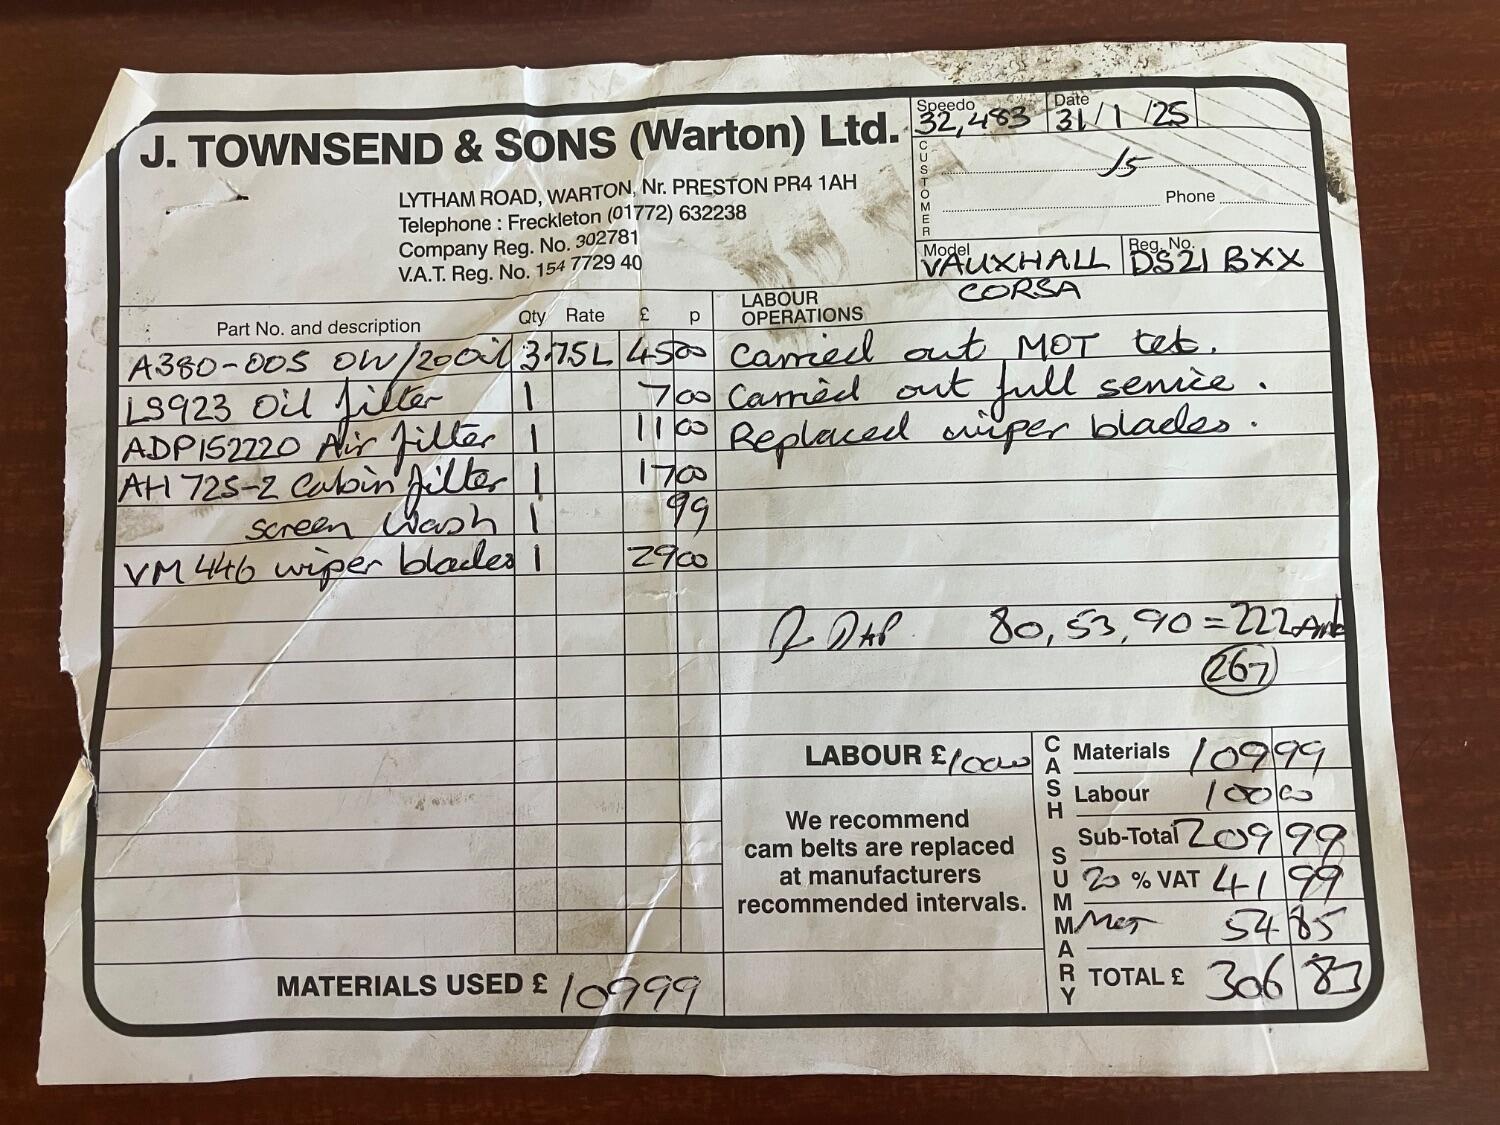 J. TOWNSEND & SONS (Warton) Ltd.
LYTHAM ROAD, WARTON, Nr. PRESTON PR4 1AH
Telephone : Freckleton (01772) 632238
Company Reg. No. 302781
V.A.T. Reg. No. 154 7729 40
Speedo 32,483 Date 31/1/25
CUSTOMER
Phone
Model VAUXHALL CORSA
Reg. No. DS21 BXX
Part No. and description Qty Rate £ p
A380-005 0W/20 Oil 3.75L 45 00
LS923 Oil filter 1 7 00
ADP152220 Air filter 1 11 00
AH 725-2 Cabin filter 1 17 00
screen wash 1 99
VM 446 wiper blades 1 29 00
LABOUR OPERATIONS
Carried out MOT tet.
Carried out full service.
Replaced wiper blades.
80, 53, 90 = 222
267
LABOUR £ 100 00
We recommend
cam belts are replaced
at manufacturers
recommended intervals.
MATERIALS USED £ 109 99
CASH SUMMARY
Materials 109 99
Labour 100 00
Sub-Total 209 99
20 % VAT 41 99
MOT 54 85
TOTAL £ 306 83